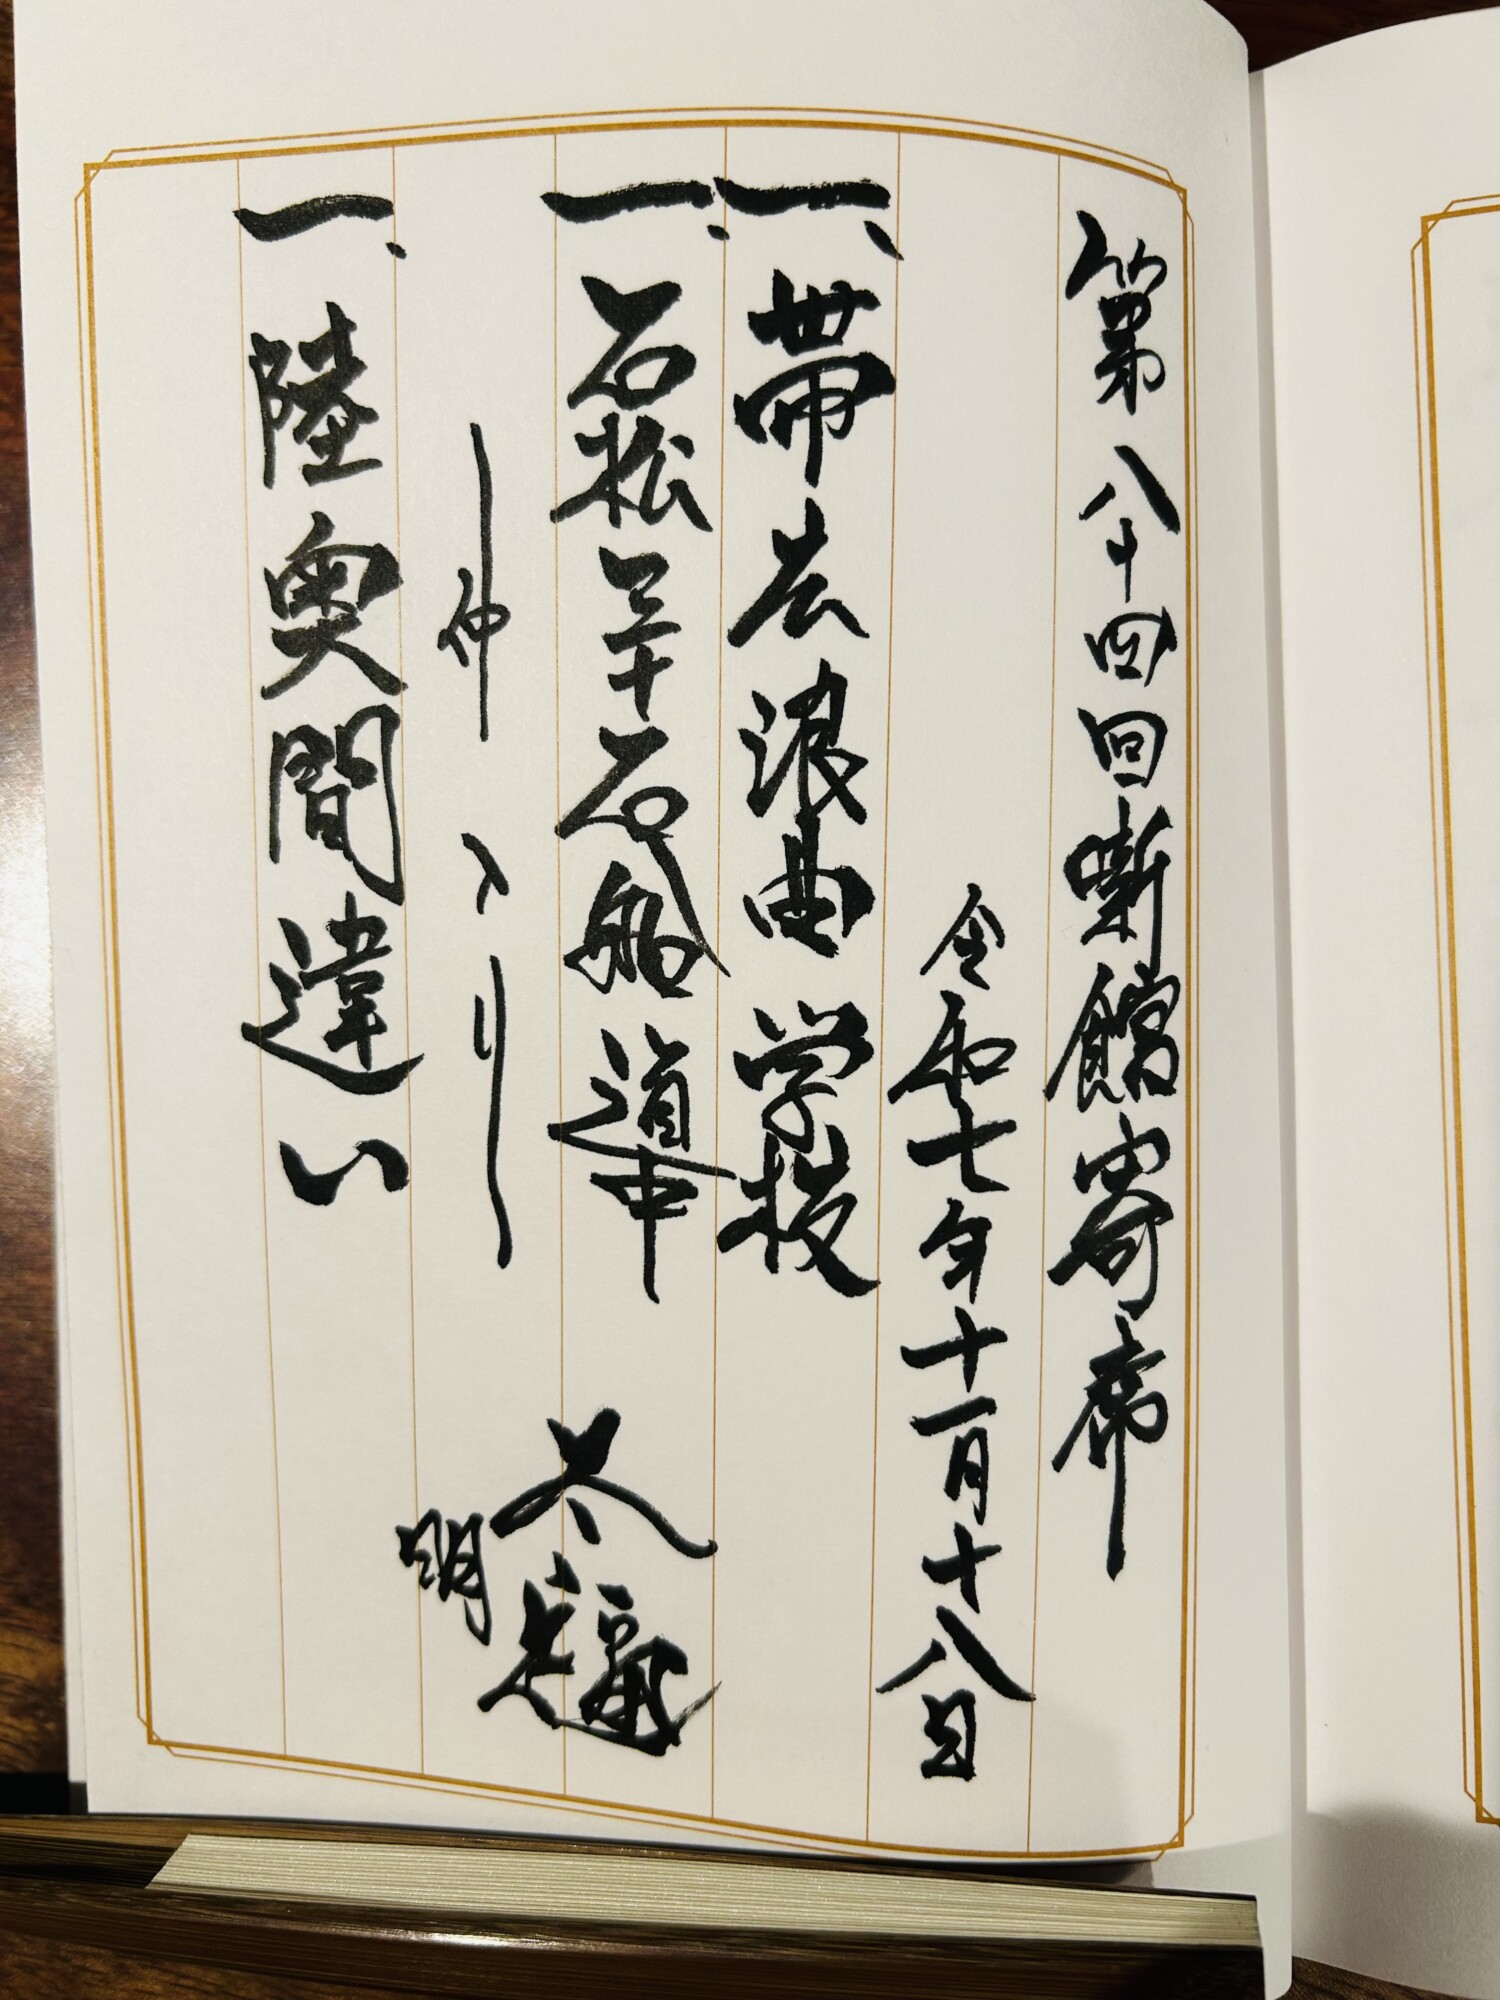 第八十四回噺館寄席
令和七年十一月十八日
一、帯久浪曲学校
一、石松三十石船道中
太福
明
仲入り
一、陸奥間違い